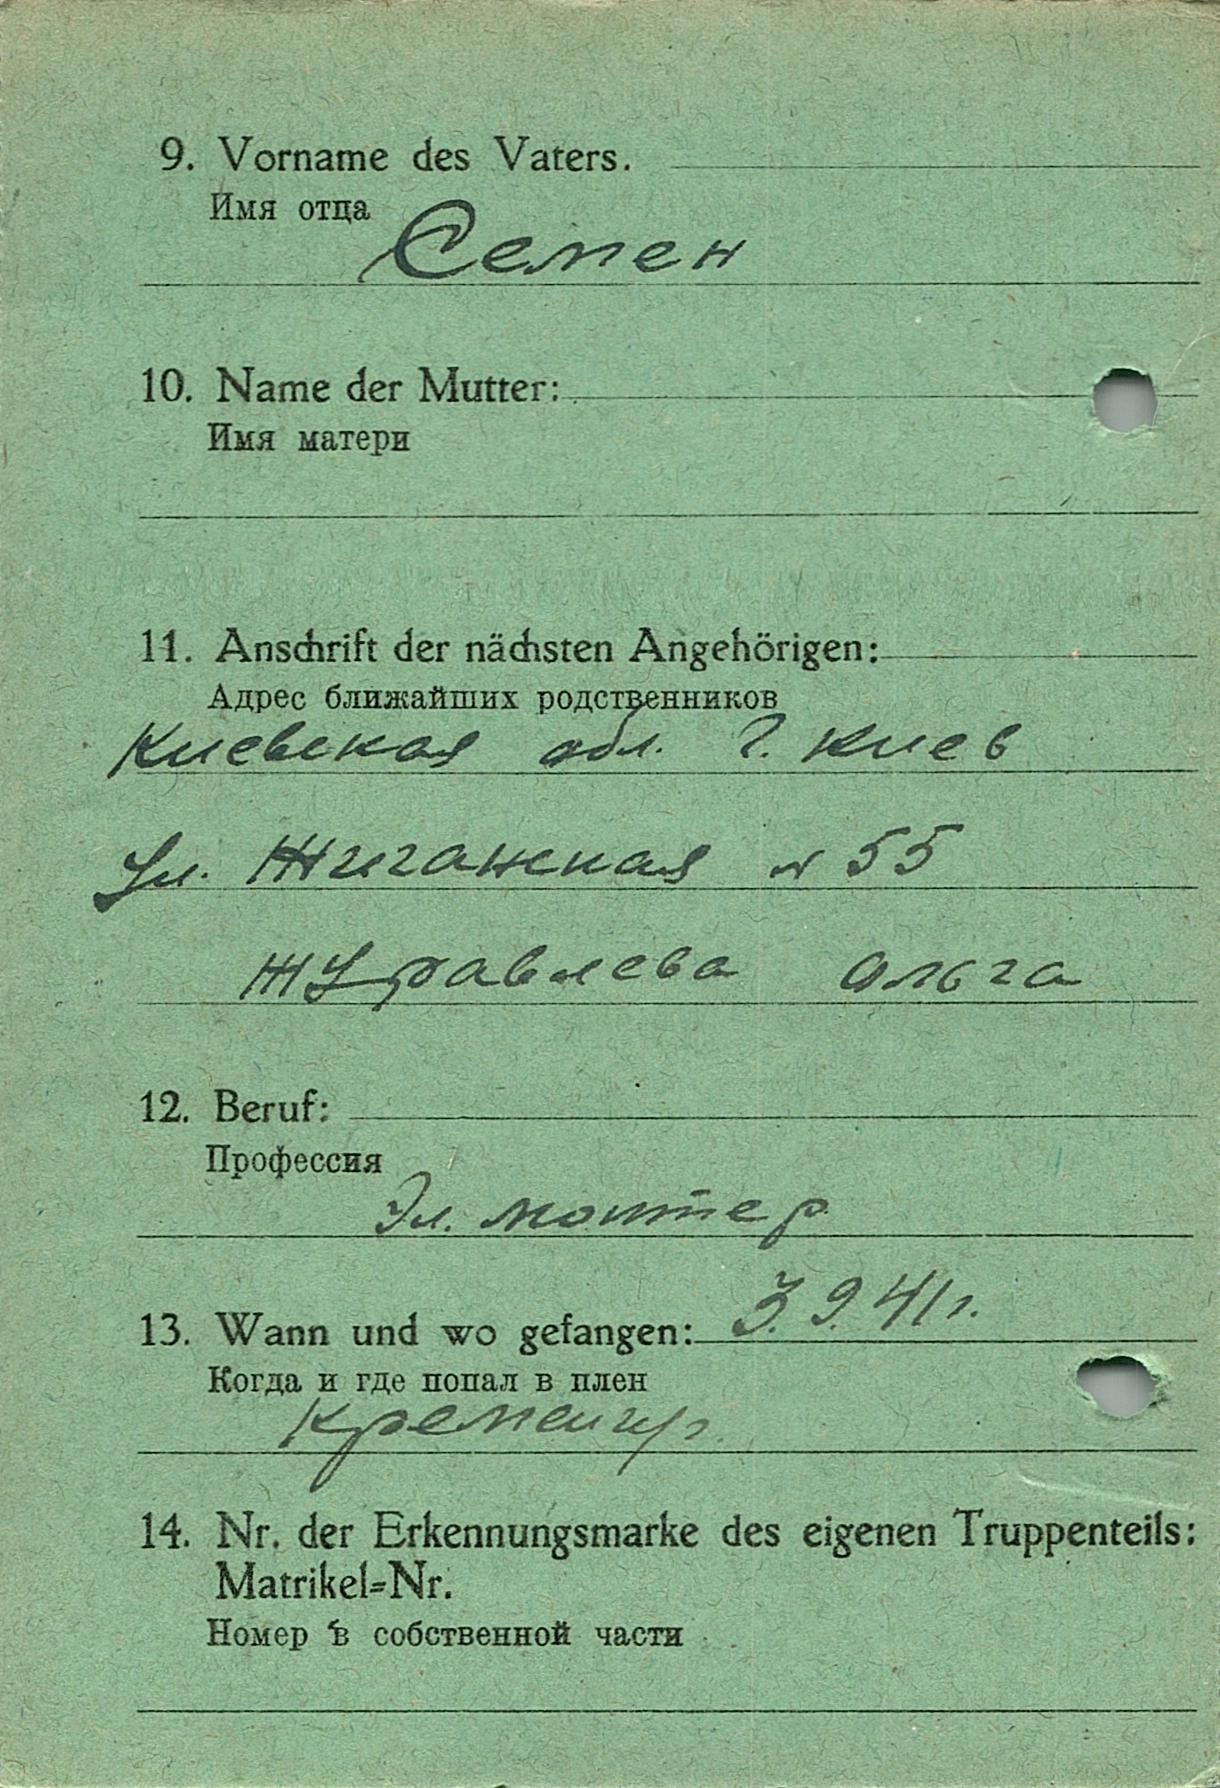 9. Vorname des Vaters.
Имя отца
Семен
10. Name der Mutter:
Имя матери
11. Anschrift der nächsten Angehörigen:
Адрес ближайших родственников
Киевская обл. г. Киев
Ул. Жиганская № 55
Журавлева Ольга
12. Beruf:
Профессия
Эл. монтер
13. Wann und wo gefangen: 3.9.41 г.
Когда и где попал в плен
14. Nr. der Erkennungsmarke des eigenen Truppenteils:
Matrikel=Nr.
Номер в собственной части